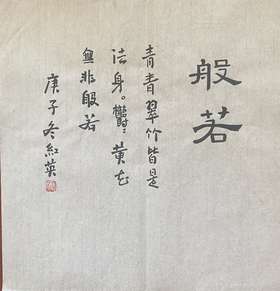 般若
青青翠竹皆是
法身。欝〻黄花
無非般若
庚子冬紅英